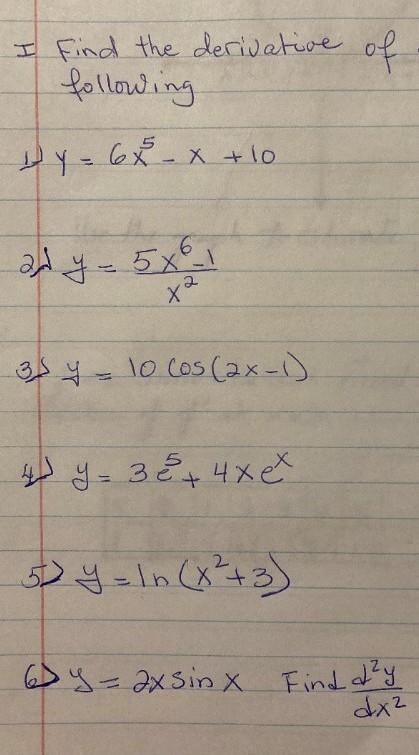 I Find the derivative of
following
1) y = 6x⁵ - x + 10
2) y = (5x⁶-1)/x²
3) y = 10 cos(2x-1)
4) y = 3e⁵ + 4xeˣ
5) y = ln(x²+3)
6) y = 2x sin x Find d²y/dx²